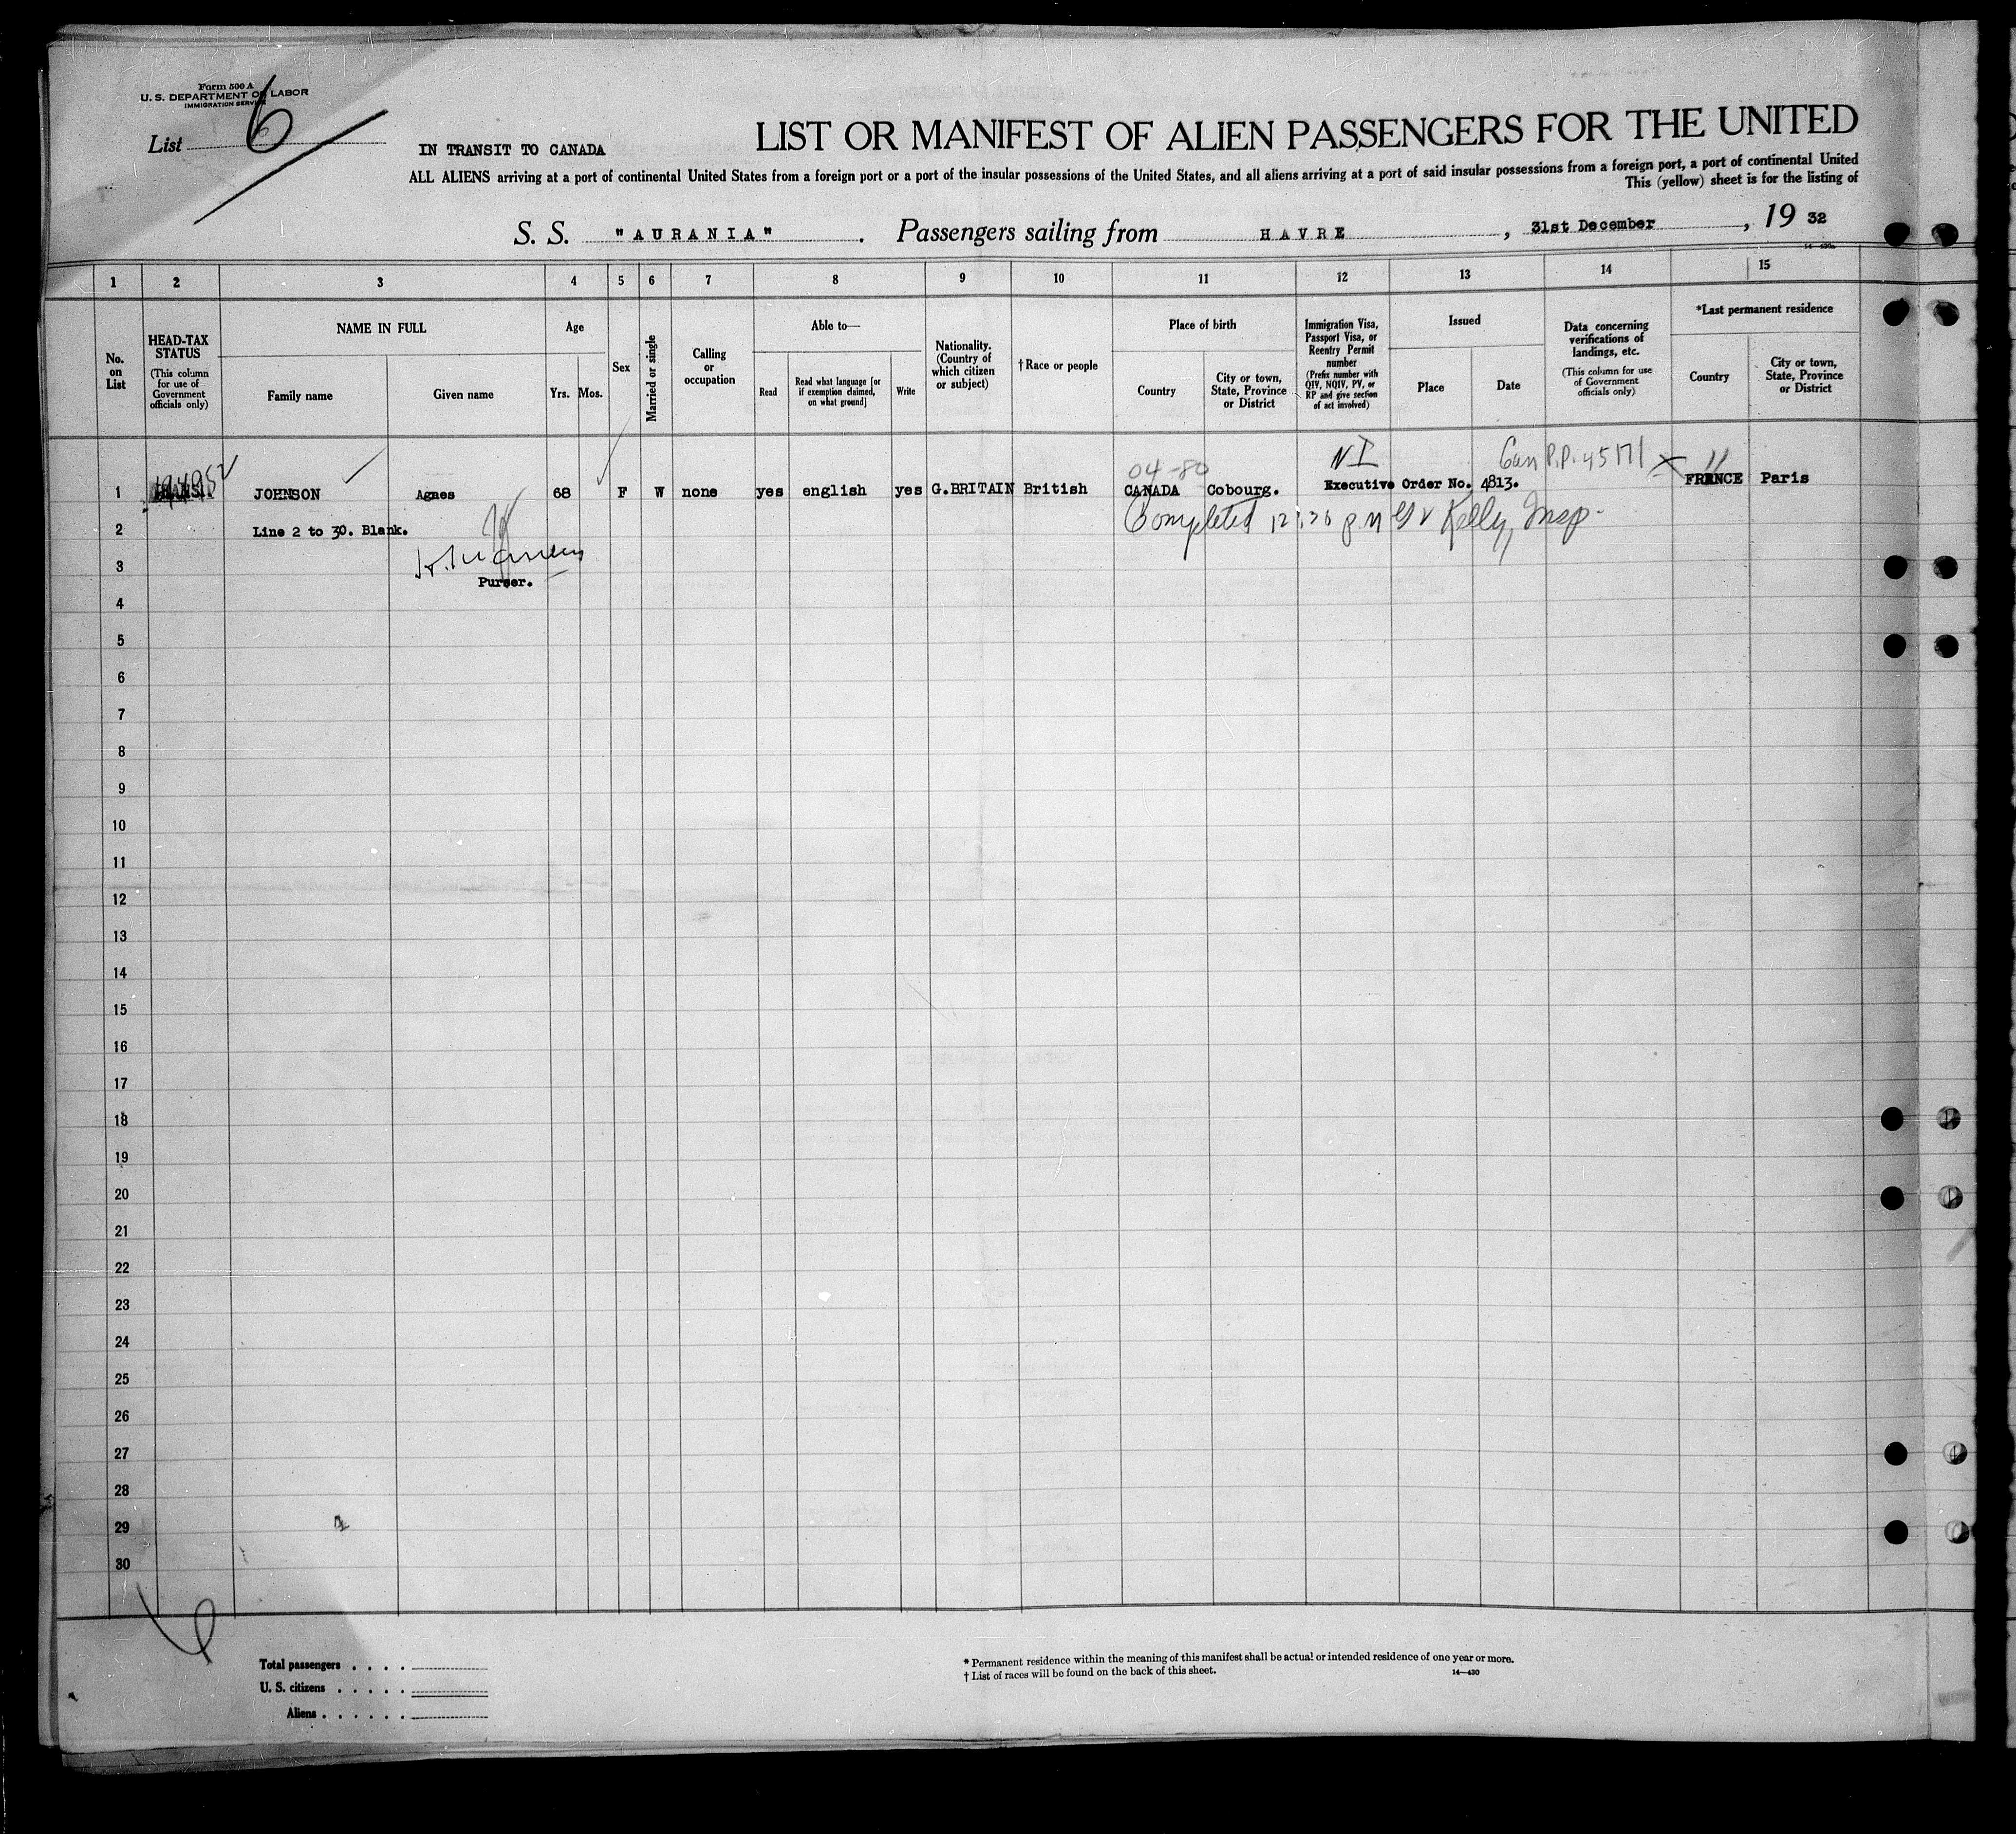 Form 500 A
U. S. DEPARTMENT OF LABOR
IMMIGRATION SERVICE
List 6
IN TRANSIT TO CANADA
LIST OR MANIFEST OF ALIEN PASSENGERS FOR THE UNITED
ALL ALIENS arriving at a port of continental United States from a foreign port or a port of the insular possessions of the United States, and all aliens arriving at a port of said insular possessions from a foreign port, a port of continental United
This (yellow) sheet is for the listing of
S. S. "AURANIA". Passengers sailing from HAVRE, 31st December, 19 32
1 2 3 4 5 6 7 8 9 10 11 12 13 14 15
No. on List
HEAD-TAX STATUS
(This column for use of Government officials only)
NAME IN FULL
Family name
Given name
Age
Yrs. Mos.
Sex
Married or single
Calling or occupation
Able to—
Read
Read what language [or if exemption claimed, on what ground]
Write
Nationality. (Country of which citizen or subject)
†Race or people
Place of birth
Country
City or town, State, Province or District
Immigration Visa, Passport Visa, or Reentry Permit number
(Prefix number with QIV, NQIV, PV, or RP and give section of act involved)
Issued
Place
Date
Data concerning verifications of landings, etc.
(This column for use of Government officials only)
*Last permanent residence
Country
City or town, State, Province or District
04-80 NI Can P.P. 45171
1 TRANSI. JOHNSON Agnes 68 F W none yes english yes G.BRITAIN British CANADA Cobourg. Executive Order No. 4813. FRANCE Paris
2 Line 2 to 30. Blank. Completed Kelly, Insp.
3
Purser.
4
5
6
7
8
9
10
11
12
13
14
15
16
17
18
19
20
21
22
23
24
25
26
27
28
29
30
6
Total passengers . . . .
U. S. citizens . . . . .
Aliens . . . . . .
* Permanent residence within the meaning of this manifest shall be actual or intended residence of one year or more.
† List of races will be found on the back of this sheet.
14—430